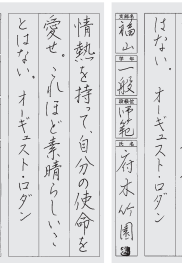 はない。 オーギュスト・ロダン
支部名 福山 学年 一般 段級位 師範 氏名 府木竹園
情熱を持って、自分の使命を
愛せ。これほど素晴らしいこ
とはない。 オーギュスト・ロダン